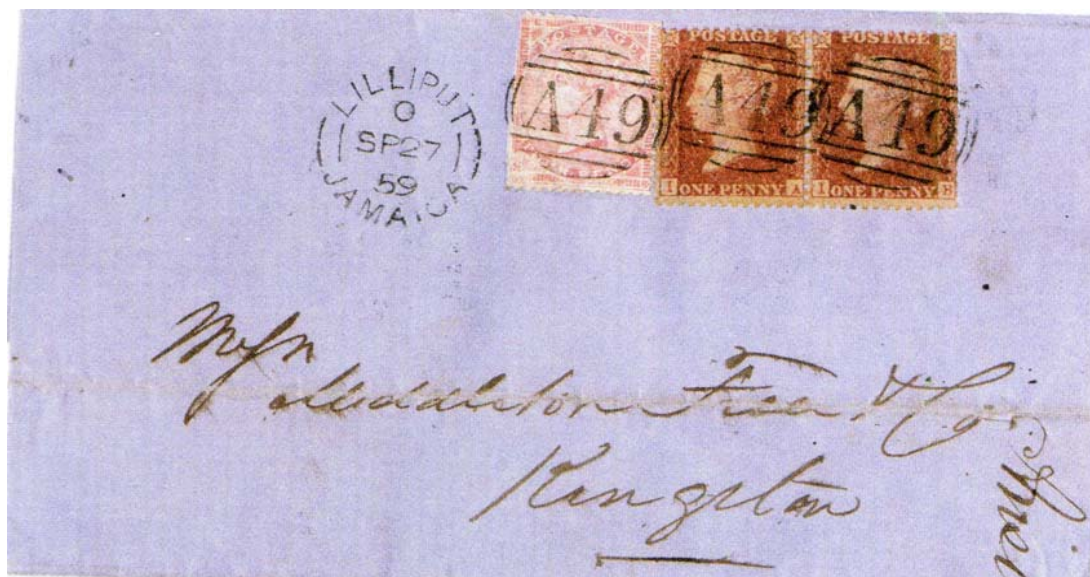 LILLIPUT
O
SP27
59
JAMAICA
POSTAGE
A49
POSTAGE
A49
I ONE PENNY A
POSTAGE
A49
I ONE PENNY B
Messrs
& Co
Kingston